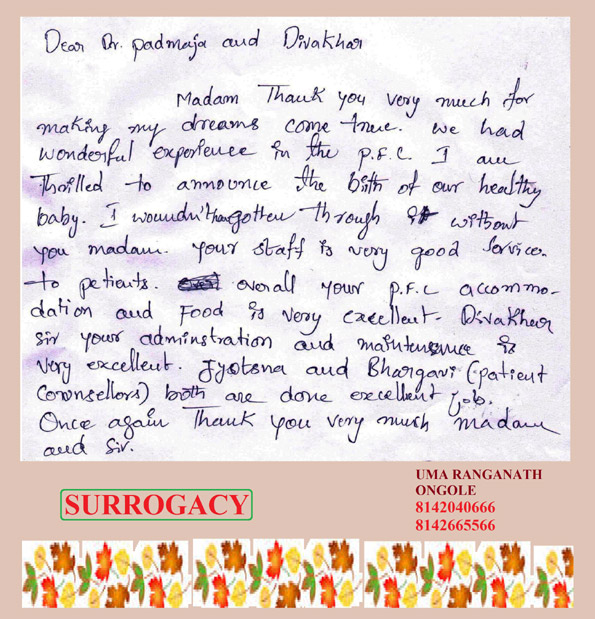 Dear Dr. padmaja and Divakhar
Madam Thank you very much for
making my dreams come true. we had
wonderful experience in the P.F.C I am
Thrilled to announce the birth of our healthy
baby. I woundn't have gotten through it without
you madam. your staff is very good service.
to petients. overall your P.F.C accommo-
dation and Food is very excellent. Divakhar
sir your adminstration and maintenance is
very excellent. Jyotsna and Bhargavi (patient
Counsellors) both are done excellent job.
Once again Thank you very much madam
and sir.
UMA RANGANATH
ONGOLE
8142040666
8142665566
SURROGACY